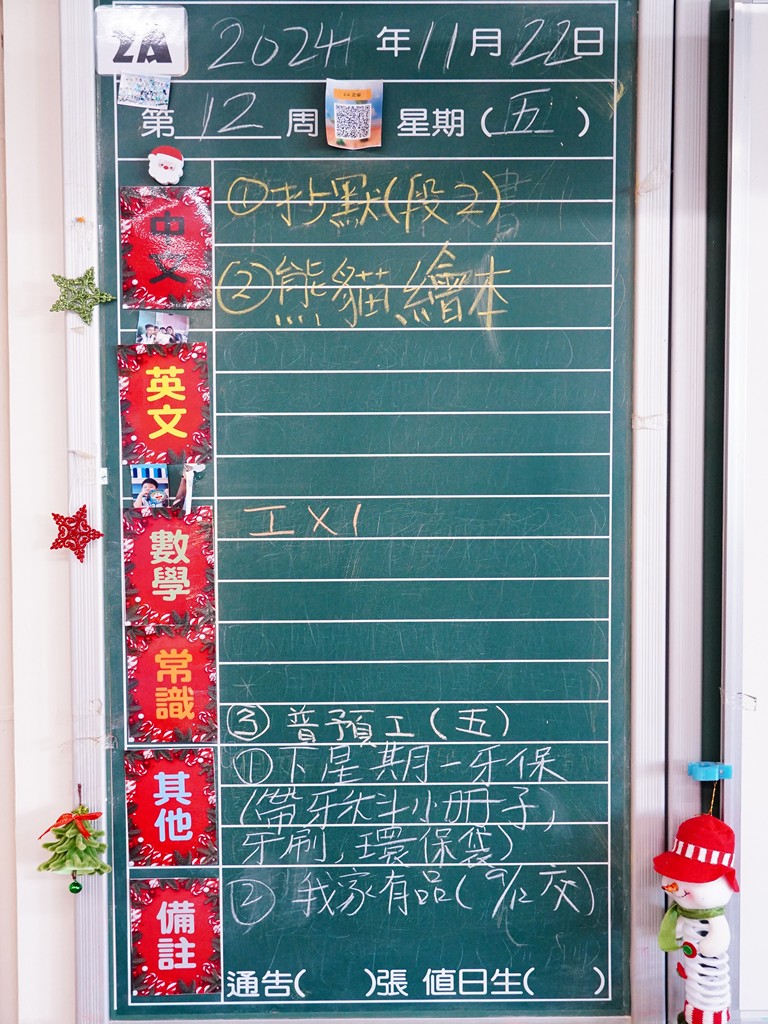 2A
2024年11月22日
第12周 星期(五)
中文
①抄默(段2)
②熊貓繪本
英文
數學
工×1
常識
③普預工(五)
其他
①下星期一牙保
(帶牙科小冊子,
牙刷,環保袋)
備註
②我家有品(9/12交)
通告( )張 值日生( )